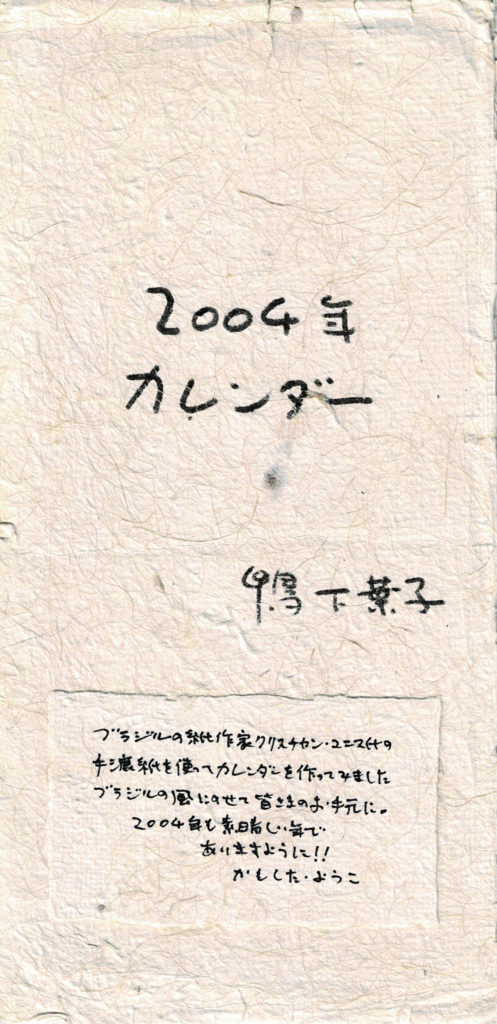 2004年
カレンダー
鴨下葉子
ブラジルの紙作家クリスチャン・ユニス氏の
手漉紙を使ってカレンダーを作ってみました
ブラジルの風にのせて皆さまのお手元に。
2004年も素晴しい年で
ありますように!!
かもした・ようこ